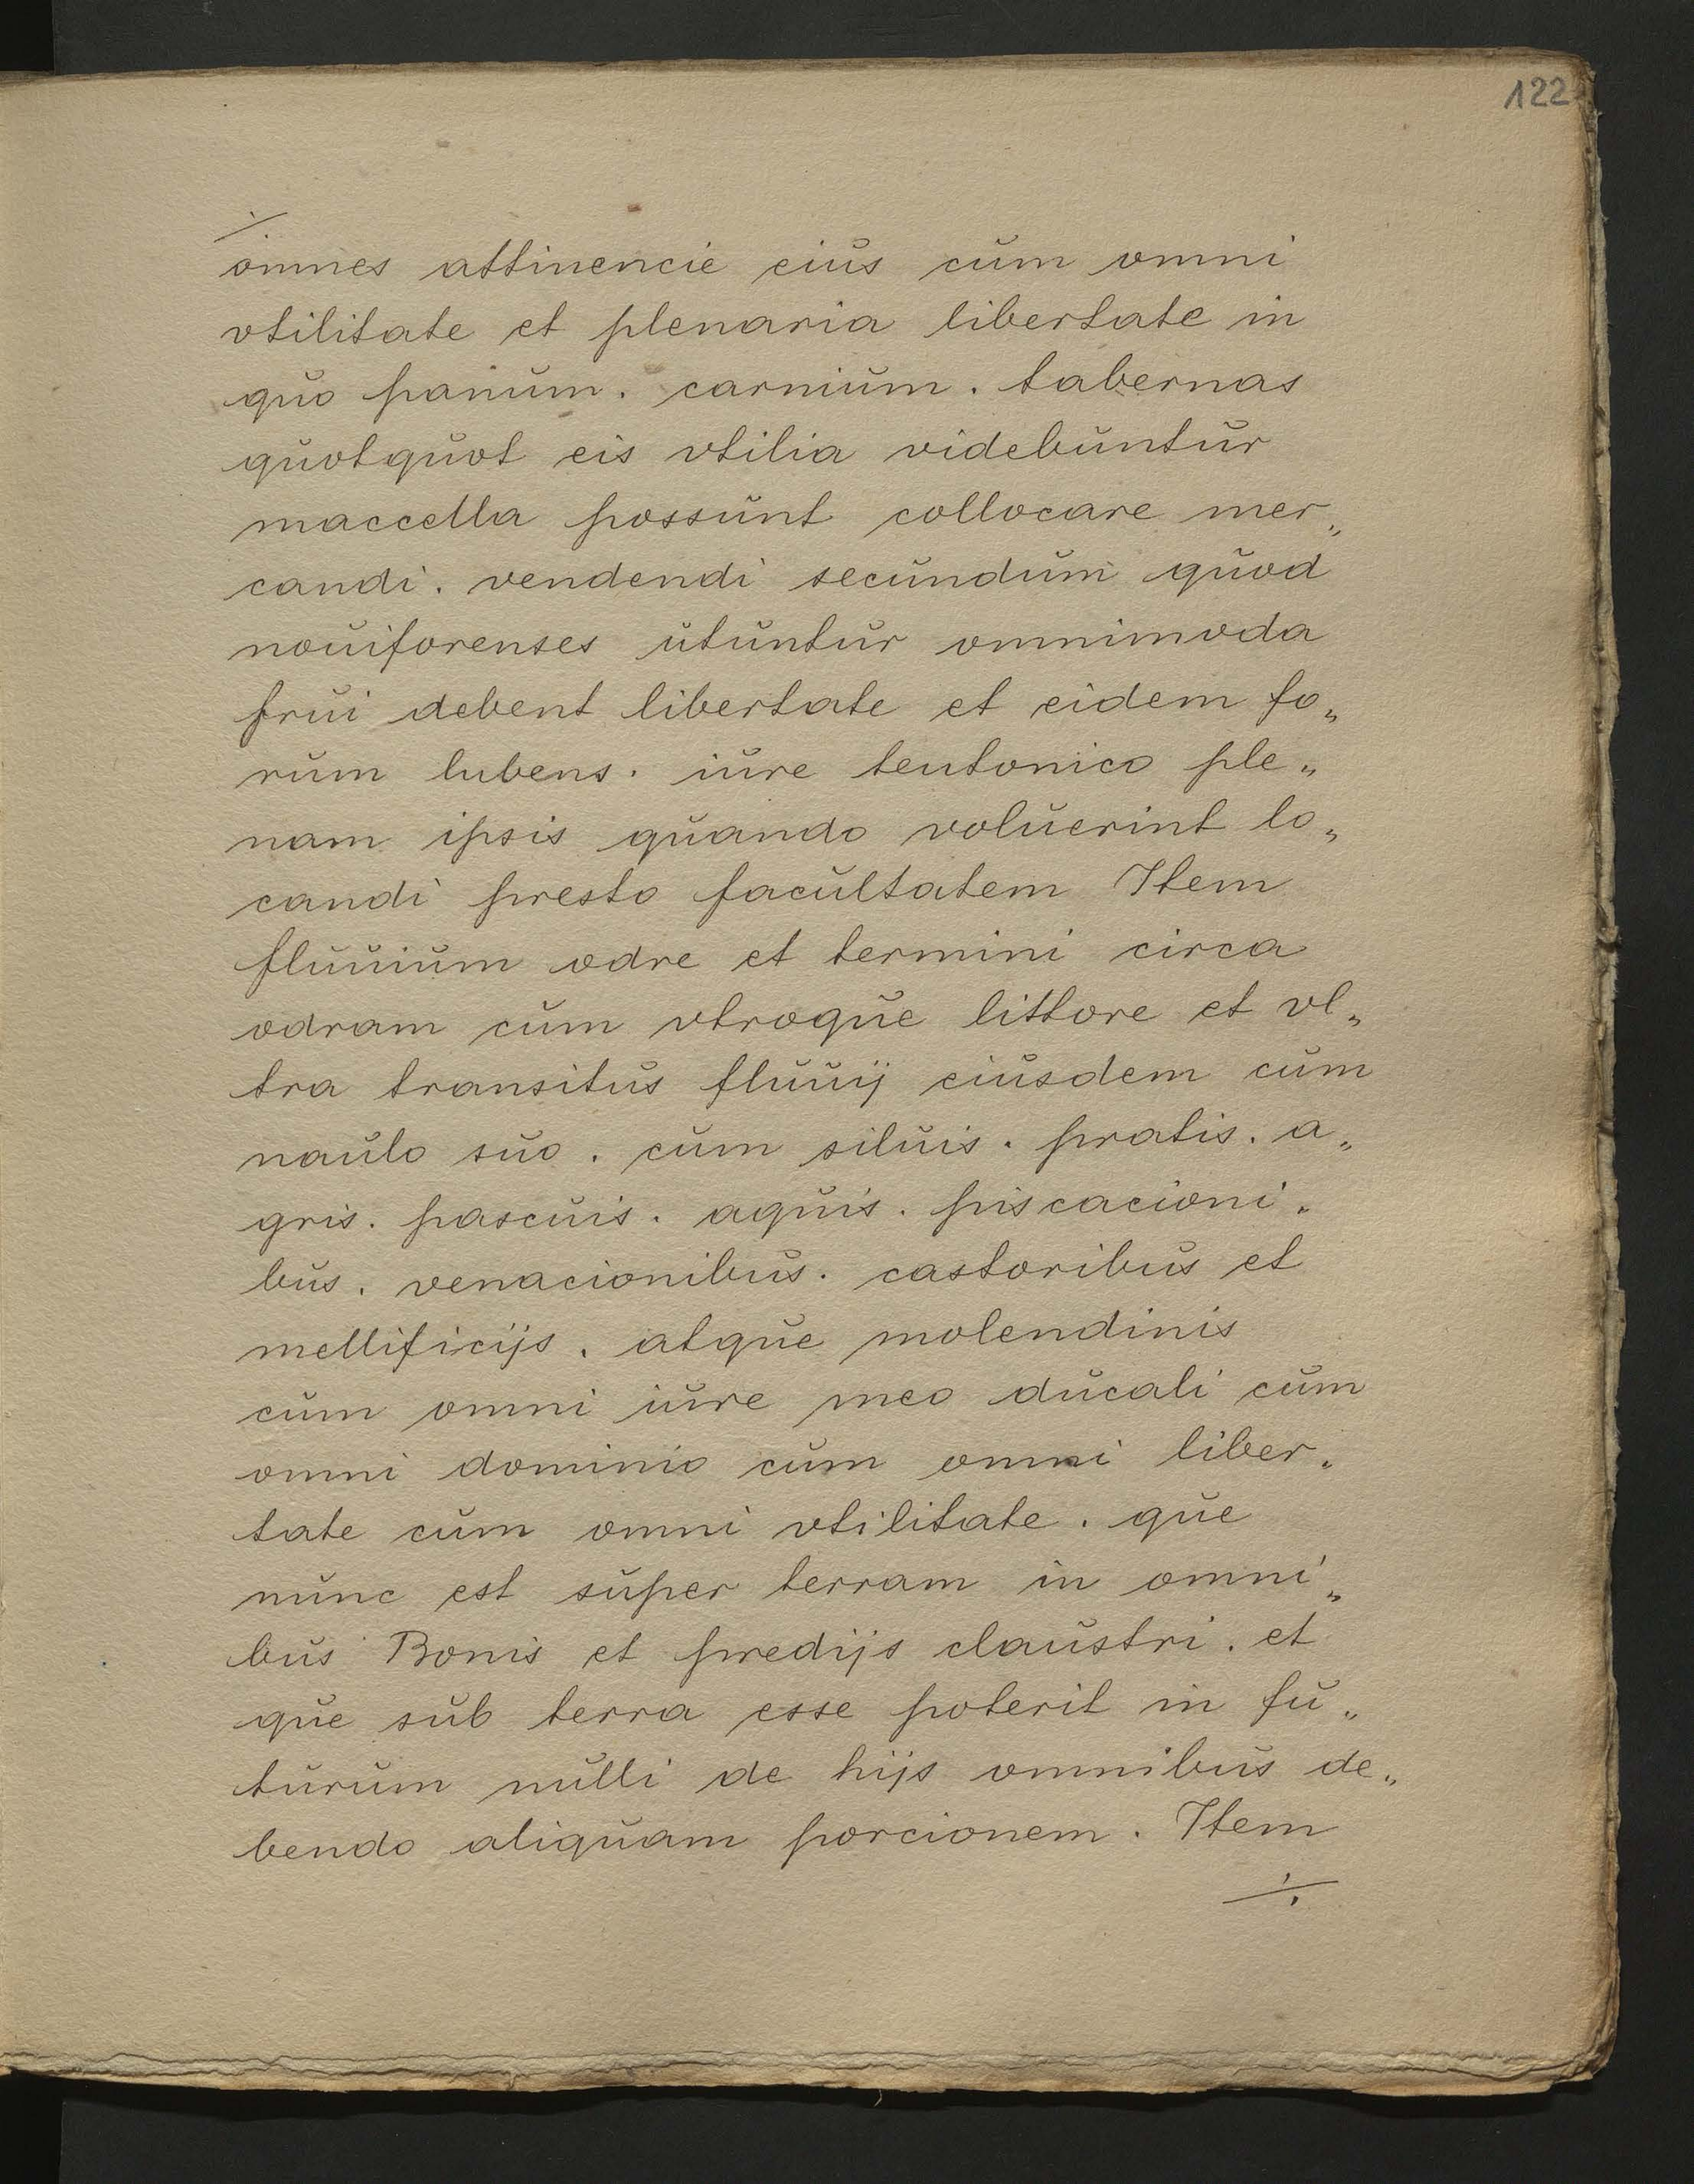 122
./.
omnes attinencie eius cum omni
vtilitate et plenaria libertate in
quo panum. carnium. tabernas
quotquot eis vtilia videbuntur
maccella possunt collocare mer„
candi. vendendi secundum quod
nouiforenses utuntur omnimoda
frui debent libertate et eidem fo„
rum lubens. iure teutonico ple„
nam ipsis quando voluerint lo„
candi presto facultatem Item
fluuium odre et termini circa
odram cum vtroque littore et vl„
tra transitus fluuij eiusdem cum
naulo suo. cum siluis. pratis. a„
gris. pascuis. aquis. piscacioni„
bus. venacionibus. castoribus et
mellificijs. atque molendinis
cum omni iure meo ducali cum
omni dominio cum omni liber„
tate cum omni vtilitate. que
nunc est super terram in omni„
bus Bonis et predijs claustri. et
que sub terra esse poterit in fu„
turum nulli de hijs omnibus de„
bendo aliquam porcionem. Item
./.